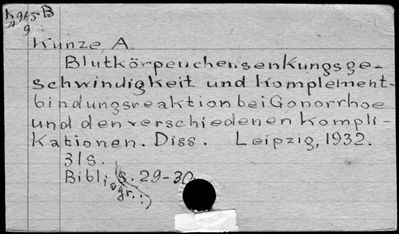 K965-B
9
Kunze, A.
Blutkörpeuchensenkungsge-
schwindigkeit und Komplement-
bindungsreaktion bei Gonorrhoe
und den verschiedenen Kompli-
kationen. Diss. Leipzig, 1932.
31s.
Bibliogr.: s. 29-30